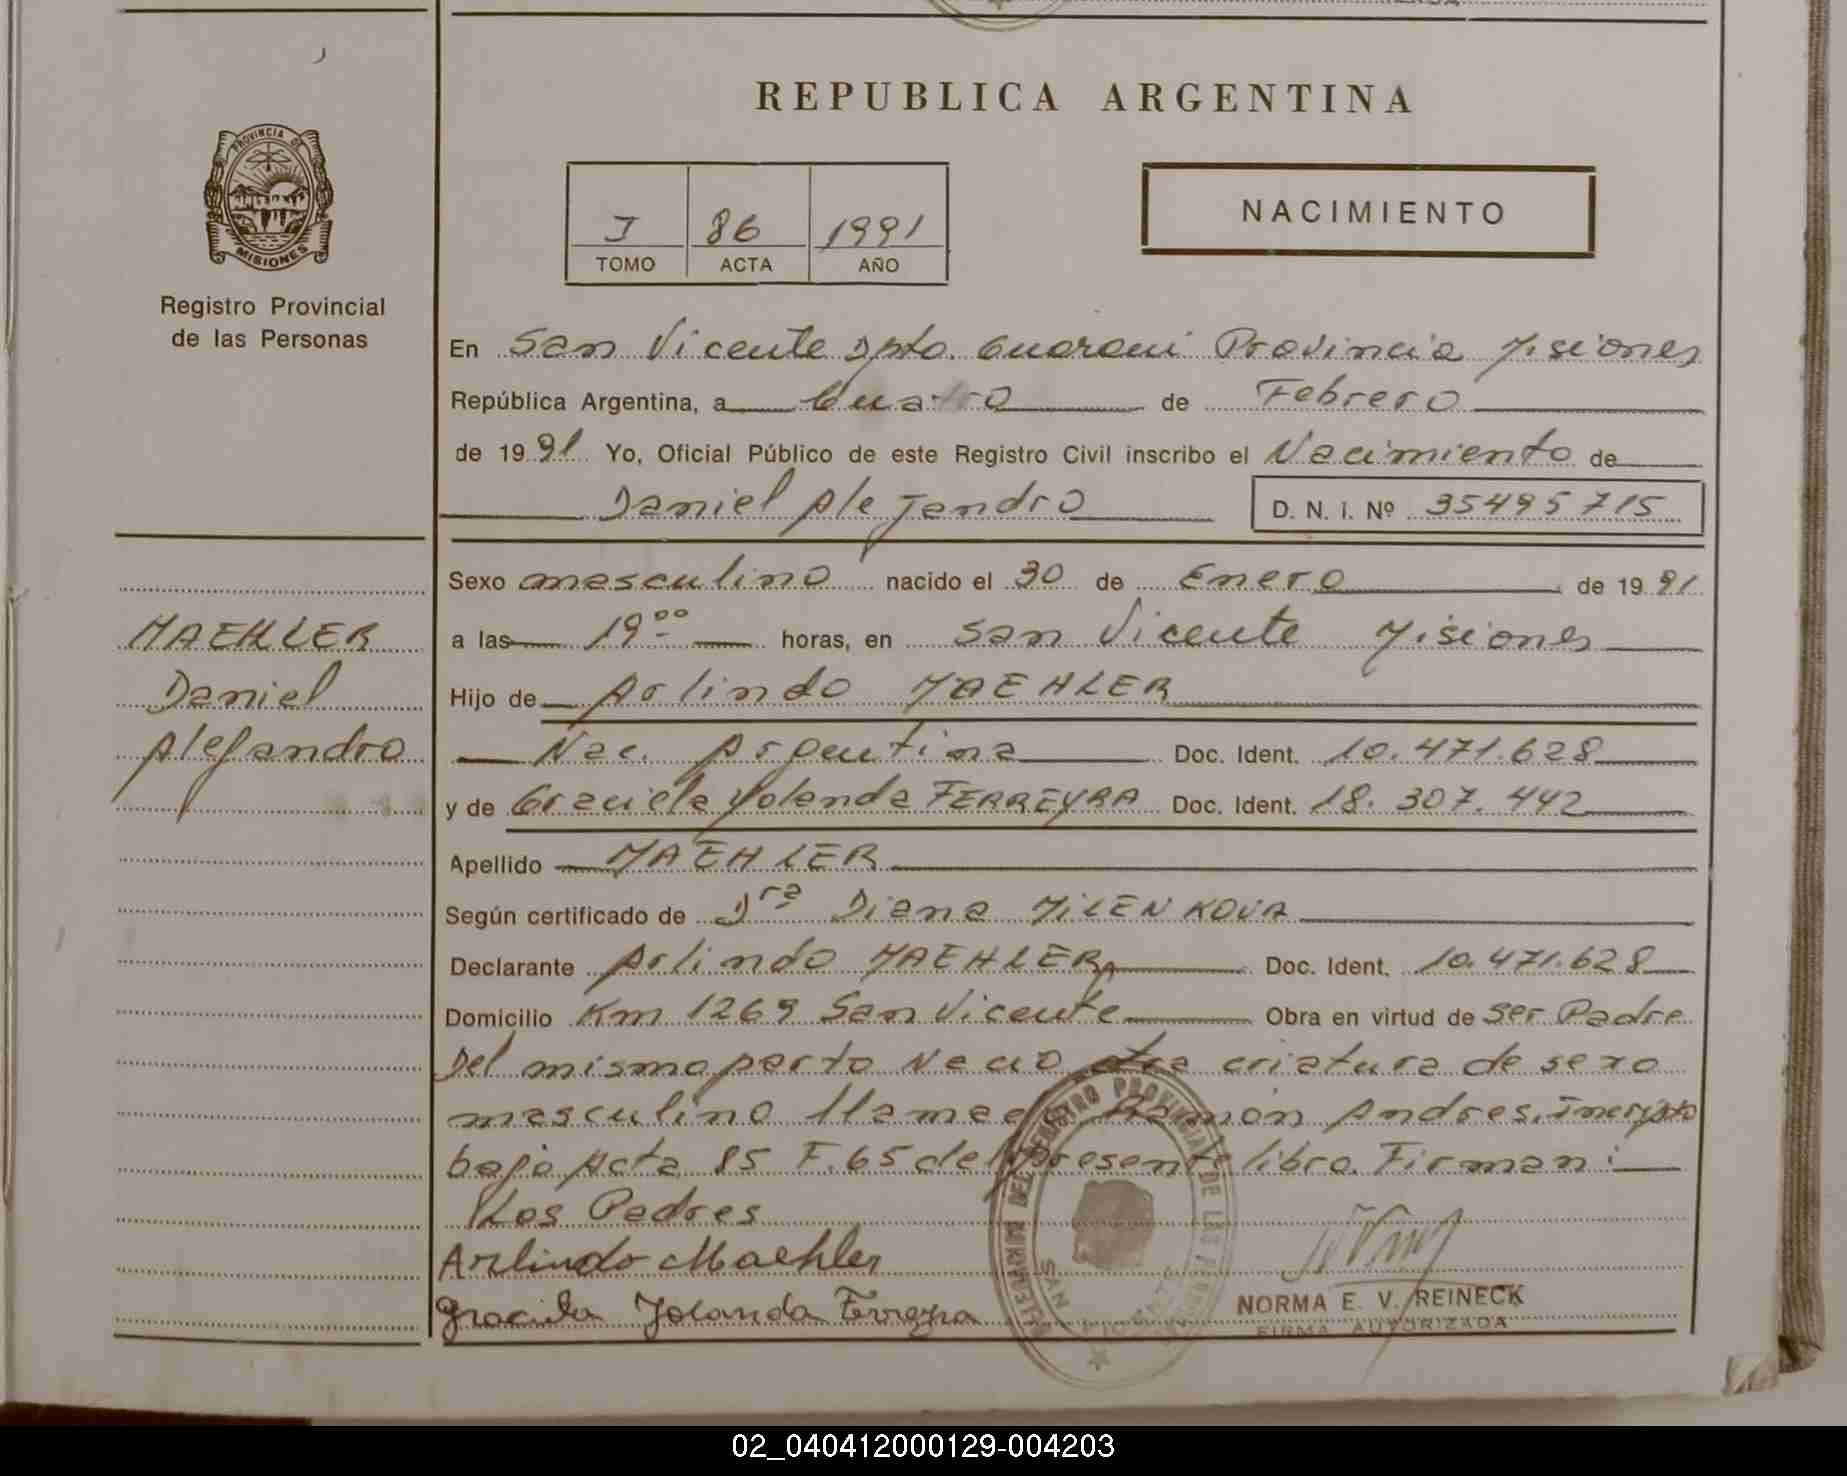 REPUBLICA ARGENTINA
PROVINCIA DE
MISIONES
Registro Provincial
de las Personas
I 86 1991
TOMO ACTA AÑO
NACIMIENTO
En San Vicente Dpto. Guarani Provincia Misiones
República Argentina, a Cuatro de Febrero
de 1991 Yo, Oficial Público de este Registro Civil inscribo el Nacimiento de
Daniel Alejandro D. N. I. Nº 35495715
Sexo masculino nacido el 30 de Enero de 1991
MAEHLER
Daniel
Alejandro
a las 19 00 horas, en San Vicente Misiones
Hijo de Arlindo MAEHLER
Nac. Argentina Doc. Ident. 10.471.628
y de Graciela Yolanda FERREYRA Doc. Ident. 18.307.442
Apellido MAEHLER
Según certificado de Dra Diana MILENKOVA
Declarante Arlindo MAEHLER Doc. Ident. 10.471.628
Domicilio Km 1269 San Vicente Obra en virtud de ser Padre
Del mismo parto Nacio otra criatura de sexo
masculino llamado Ramón Andres, Inscripto
bajo Acta 85 F. 65 del presente libro. Firman:
Los Padres
Arlindo Maehler
Graciela Yolanda Ferreyra
NORMA E. V. REINECK
FIRMA AUTORIZADA
02_040412000129-004203